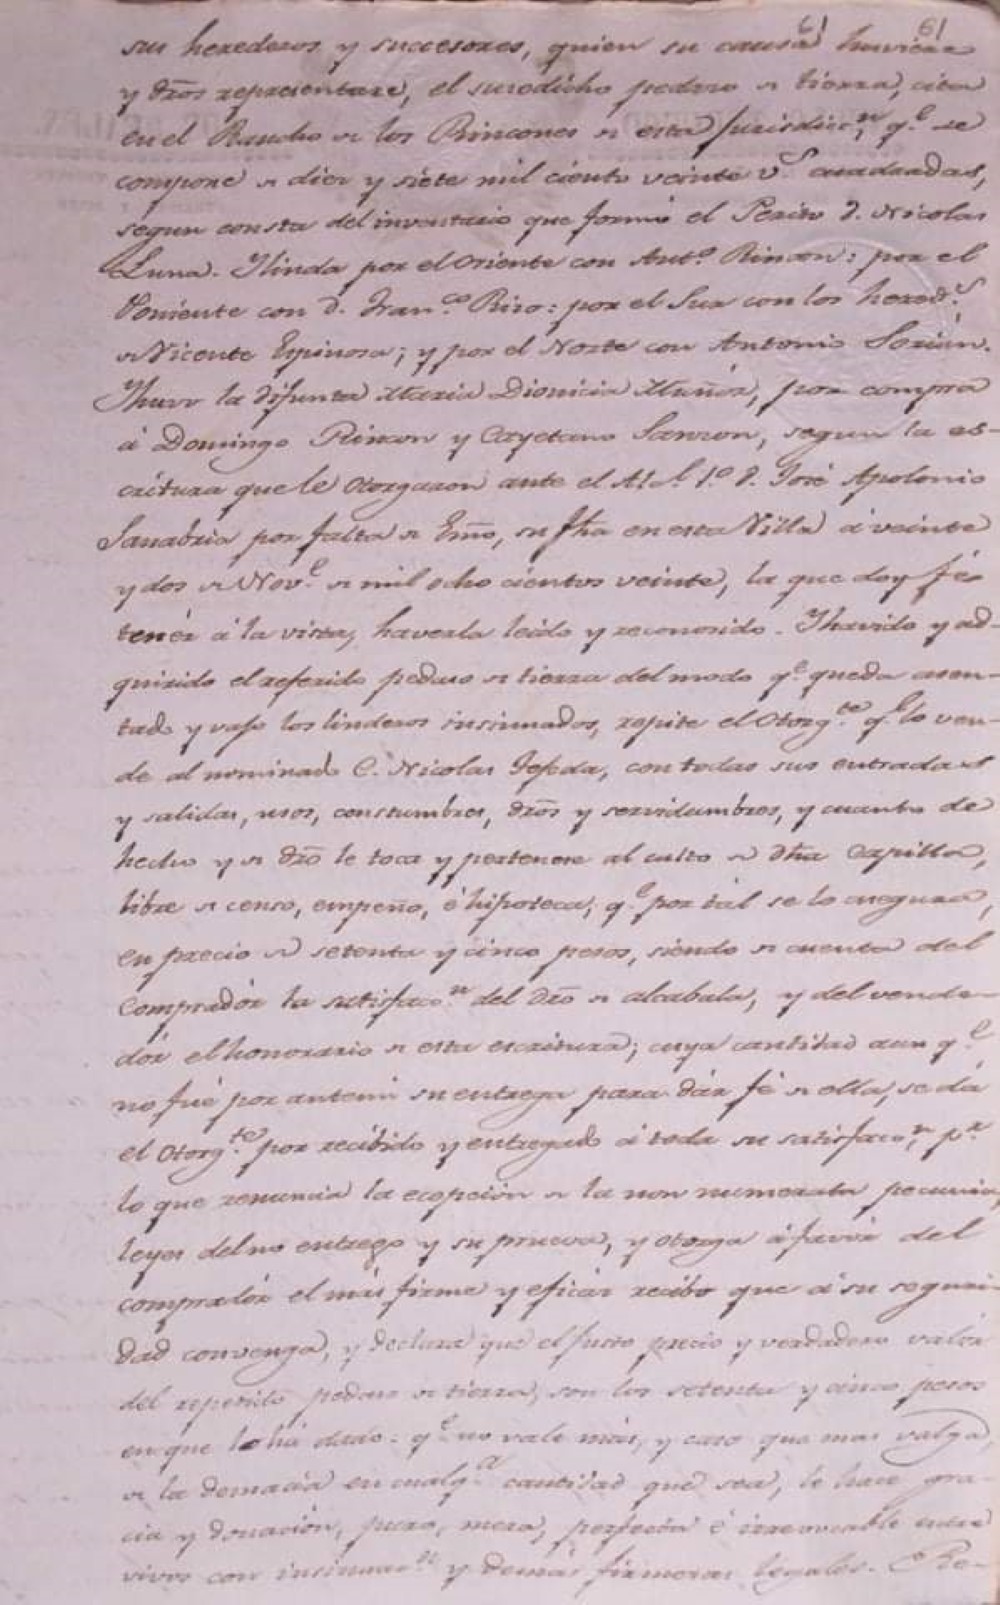 61 61
sus herederos y succesores, quien su causa huviere
y dros representare, el susodicho pedaso de tierra, cita
en el Rancho de los Rincones de esta Jurisdicn, qe se
compone de diez y siete mil ciento veinte vs cuadradas,
segun consta del inventario que formó el Perito D. Nicolas
Luna. Y linda por el Oriente con Anto Rincon: por el
Poniente con D. Franco Riso: por el Sur con los hereds
de Vicente Espinosa; y por el Norte con Antonio
Y huvo la difunta Maria Dionicia Muñoz, por compra
á Domingo Rincon y Cayetano, segun la es-
critura que le otorgaron ante el Al. 1o D. José Apolonio
Sanabria por falta de Esno, su fha en esta Villa á veinte
y dos de Nove de mil ocho cientos veinte, la que doy fé
tenér á la vista, haverla leido y reconosido. Y havido y ad-
quirido el referido pedaso de tierra del modo qe queda asen-
tado y vajo los linderos insinuados, repite el Otorgte qe lo ven-
de al nominado C. Nicolas Tejeda, con todas sus entradas
y salidas, usos, constumbres, dros y servidumbres, y cuanto de
hecho y de dro le toca y pertenese al culto de dha Capilla,
libre de censo, empeño, é hipoteca; qe por tál se lo asegura,
en precio de setenta y cinco pesos, siendo de cuenta del
Compradór la satisfacn del dro de alcabala, y del vende-
dór el honorario de esta escritura; cuya cantidad aun qe
no fué por antemi su entrega para dár fé de ella, se dá
el Otorgte por recibido y entregado á toda su satisfacn, pr
lo que renuncia la ecepcion de la non numerata pecunia,
leyes del no entrego y su prueva, y otorga á favór del
compradór el más firme y eficáz recibo que á su seguri-
dad convenga, y declara que el justo precio y verdadero valór
del repetido pedaso de tierra, son los setenta y cinco pesos
en que lo há dado: qe no vale más, y caso que mas valga,
de la demacia en cualqa cantidad que sea, le hace gra-
cia y donación, pura, mera, perfecta é irrevocable entre
vivos con insinuacn y demás firmezas legales. Re-